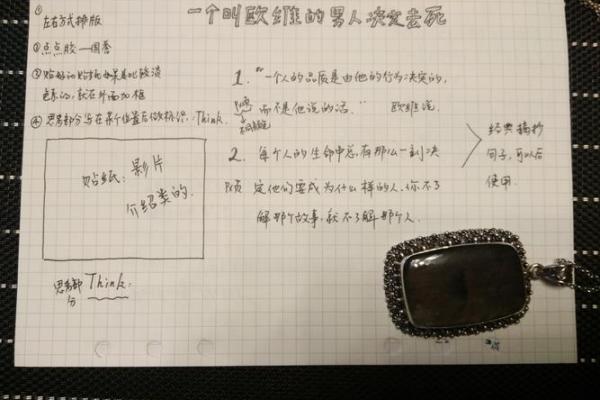 一个叫欧维的男人决定去死
①
左右方式排版
②点点胶—国誉
③贴好的贴纸如果是比较浅
色系的,就在外面加框
④思考部分写在某个位置后做标识:Think.
贴纸:影片
介绍类的.
思考部分 Think:
1.“一个人的品质是由他的行为决定的,
而不是他说的话.” 欧维说.
2. 每个人的生命中总有那么一刻决
定他们要成为什么样的人.你不了
解那个故事,就不了解那个人.
经典摘抄
句子,可以后
使用.